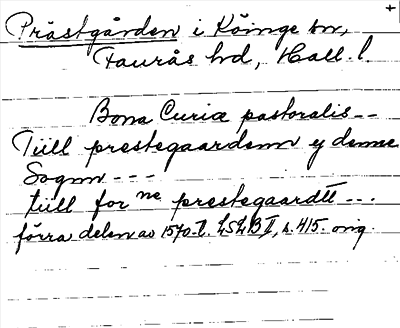 +
Prästgården i Köinge sn,
Faurås hd, Hall. l.
Bona Curiæ pastoralis--
Tiill prestegaardenn y denne
Sognn ---
tiill for ne prestegaardtt ---
förra delen av 1570-t. LSLB II, s. 415. orig.